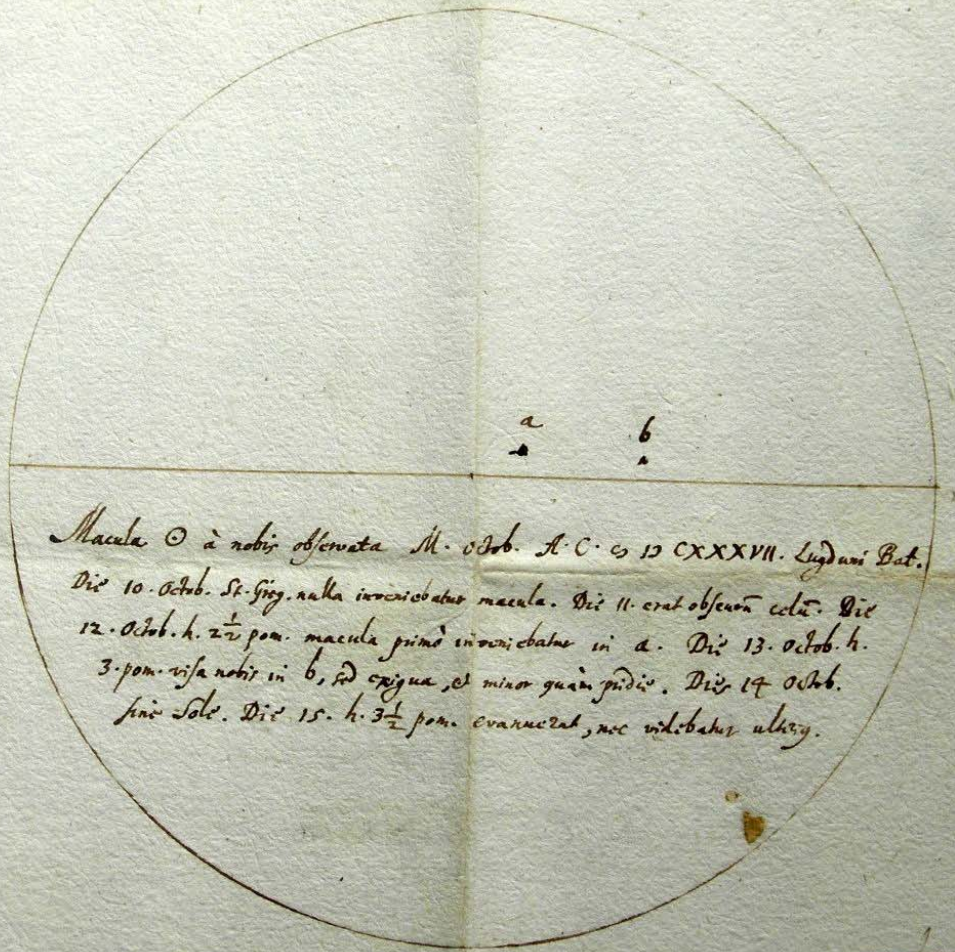 a
b
Macula ☉ à nobis observata M. Octob. A. C. CIƆ IƆ CXXXVII. Lugduni Bat.
Die 10. Octob. St. Greg. nulla inveniebatur macula. Die 11. erat obscurũ cœlũ. Die
12. Octob. h. 2½ pom. macula primò inveniebatur in a. Die 13. Octob. h.
3. pom. visa nobis in b, sed exigua, & minor quàm pridie. Dies 14 Octob.
sine Sole. Die 15. h. 3½ pom. evanuerat, nec videbatur